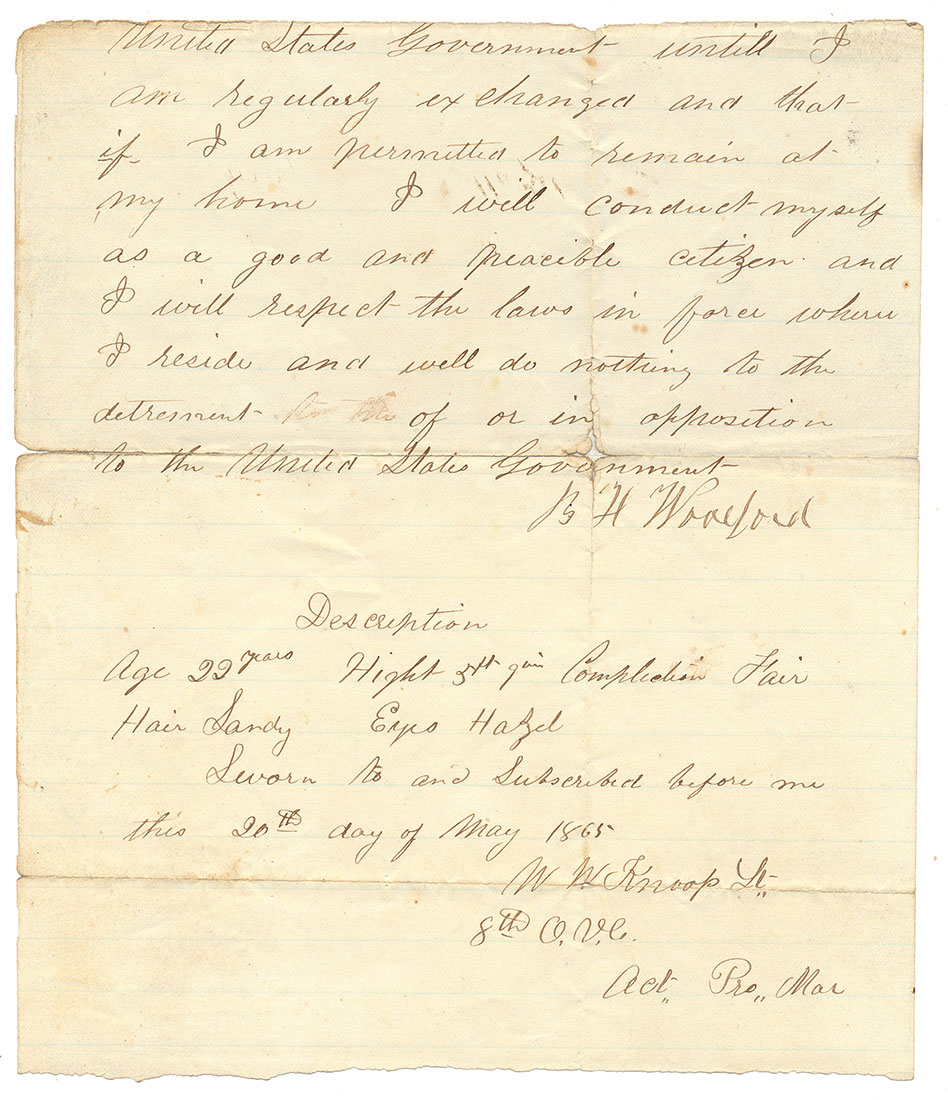 United States Government untill I
am regularly exchanged and that
if I am permitted to remain at
my home I will conduct myself
as a good and peacible citizen and
I will respect the laws in force where
I reside and will do nothing to the
detrement of or in opposition
to the United States Government
B H Woodford
Description
Age 22 years Hight 5ft 9in Complection Fair
Hair Sandy Eyes Hazel
Sworn to and Subscribed before me
this 20th day of May 1865
W W Knoop Lt.
8th O.V.C.
Act,, Pro,, Mar